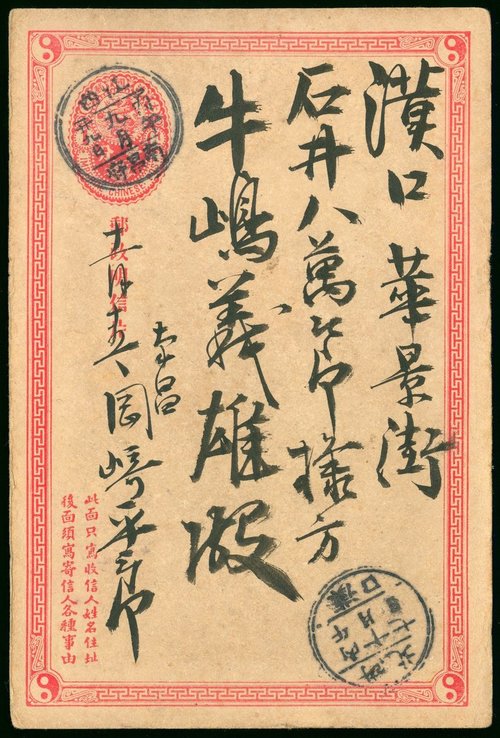 漢口 華景街
石井八萬次郎様方
牛嶋義雄殿
南昌
岡崎平三郎
CHINESE
郵政明信片
此面只寫收信人姓名住址
後面須寫寄信人各種事由
南昌府
九月
漢口
丙午